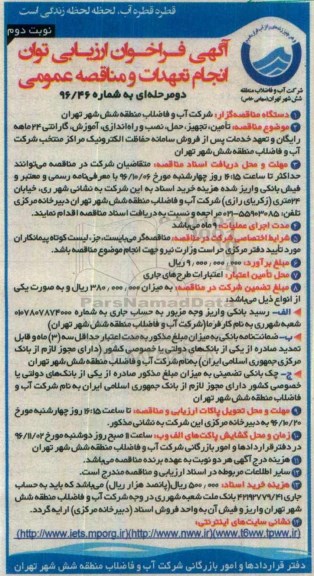 قطره قطره آب، لحظه لحظه زندگی است
نوبت دوم
آگهی فراخوان ارزیابی توان
انجام تعهدات و مناقصه عمومی
دو مرحله‌ای به شماره ۹۶/۴۶
شرکت آب و فاضلاب منطقه
شش شهر تهران (سهامی خاص)
۱ دستگاه مناقصه‌گزار: شرکت آب و فاضلاب منطقه شش شهر تهران
۲ موضوع مناقصه: تأمین، تجهیز، حمل، نصب و راه‌اندازی، آموزش، گارانتی ۲۴ ماهه
رایگان و تعهد خدمات پس از فروش سامانه حفاظت الکترونیک مراکز منتخب شرکت
آب و فاضلاب منطقه شش شهر تهران
۳ مهلت و محل دریافت اسناد مناقصه: متقاضیان شرکت در مناقصه می‌توانند
حداکثر تا ساعت ۱۶:۱۵ روز چهارشنبه مورخ ۹۶/۱۰/۰۶ با معرفی‌نامه رسمی و معتبر و
فیش بانکی واریز شده هزینه خرید اسناد به این شرکت به نشانی شهر ری، خیابان
۲۴ متری (زکریای رازی) شرکت آب و فاضلاب منطقه شش شهر تهران دبیرخانه مرکزی
تلفن: ۵۵۹۰۳۰۸۵-۰۲۱ مراجعه و نسبت به دریافت اسناد مناقصه اقدام نمایند.
۴ مدت اجرای عملیات: ۹ ماه می‌باشد
۵ شرایط اختصاصی شرکت در مناقصه: مناقصه‌گر می‌بایست، جز، لیست کوتاه پیمانکاران
مورد تأیید دفتر مرکزی حراست وزارت نیرو جهت انجام موضوع مناقصه باشد.
۶ مبلغ برآورد: ۹,۰۰۰,۰۰۰,۰۰۰ ریال
۷ محل تأمین اعتبار: اعتبارات طرح‌های جاری
۸ مبلغ تضمین شرکت در مناقصه: به میزان ۳۸۰,۰۰۰,۰۰۰ ریال و به صورت یکی
از انواع ذیل می‌باشد:
الف- رسید بانکی واریز وجه مزبور به حساب جاری به شماره ۰۱۰۷۸۰۷۸۷۴۰۰۰
شعبه شهرری به نام کارفرما (شرکت آب و فاضلاب منطقه شش شهر تهران)
ب- ضمانت‌نامه بانکی به میزان مبلغ مذکور به مدت اعتبار حداقل سه (۳) ماه و قابل
تمدید صادره از یکی از بانک‌های دولتی یا خصوصی کشور (دارای مجوز لازم از بانک
مرکزی جمهوری اسلامی ایران) به نام شرکت آب و فاضلاب منطقه شش شهر تهران
ج- چک بانکی تضمینی به میزان مبلغ مذکور صادره از یکی از بانک‌های دولتی یا
خصوصی کشور دارای مجوز لازم از بانک جمهوری اسلامی ایران به نام شرکت آب و
فاضلاب منطقه شش شهر تهران
۹ مهلت و محل تحویل پاکات ارزیابی و مناقصه: تا ساعت ۱۶:۱۵ روز چهارشنبه مورخ
۹۶/۱۰/۲۰ به دبیرخانه مرکزی این شرکت به نشانی مذکور.
۱۰ زمان و محل گشایش پاکت‌های الف و ب: ساعت ۱۱ صبح روز دوشنبه مورخ ۹۶/۱۱/۰۲
در دفتر قراردادها و امور بازرگانی شرکت آب و فاضلاب منطقه شش شهر تهران
۱۱ هزینه درج آگهی هر دو نوبت به عهده برنده مناقصه می‌باشد.
۱۲ سایر اطلاعات مربوطه در اسناد ارزیابی و مناقصه مندرج است.
۱۳ هزینه خرید اسناد: ۵۰۰,۰۰۰ ریال (پانصد هزار ریال) می‌باشد که باید به حساب
جاری بانک ملت شعبه شهرری در وجه شرکت آب و فاضلاب منطقه شش
شهر تهران واریز و فیش آن به واحد فروش اسناد (دبیرخانه مرکزی) ارایه گردد.
۱۴ نشانی سایت‌های اینترنتی:
(http://www.iets.mporg.ir)(http://www.nww.ir)(www.t6ww.tpww.ir)
دفتر قراردادها و امور بازرگانی شرکت آب و فاضلاب منطقه شش شهر تهران
ParsNamadData